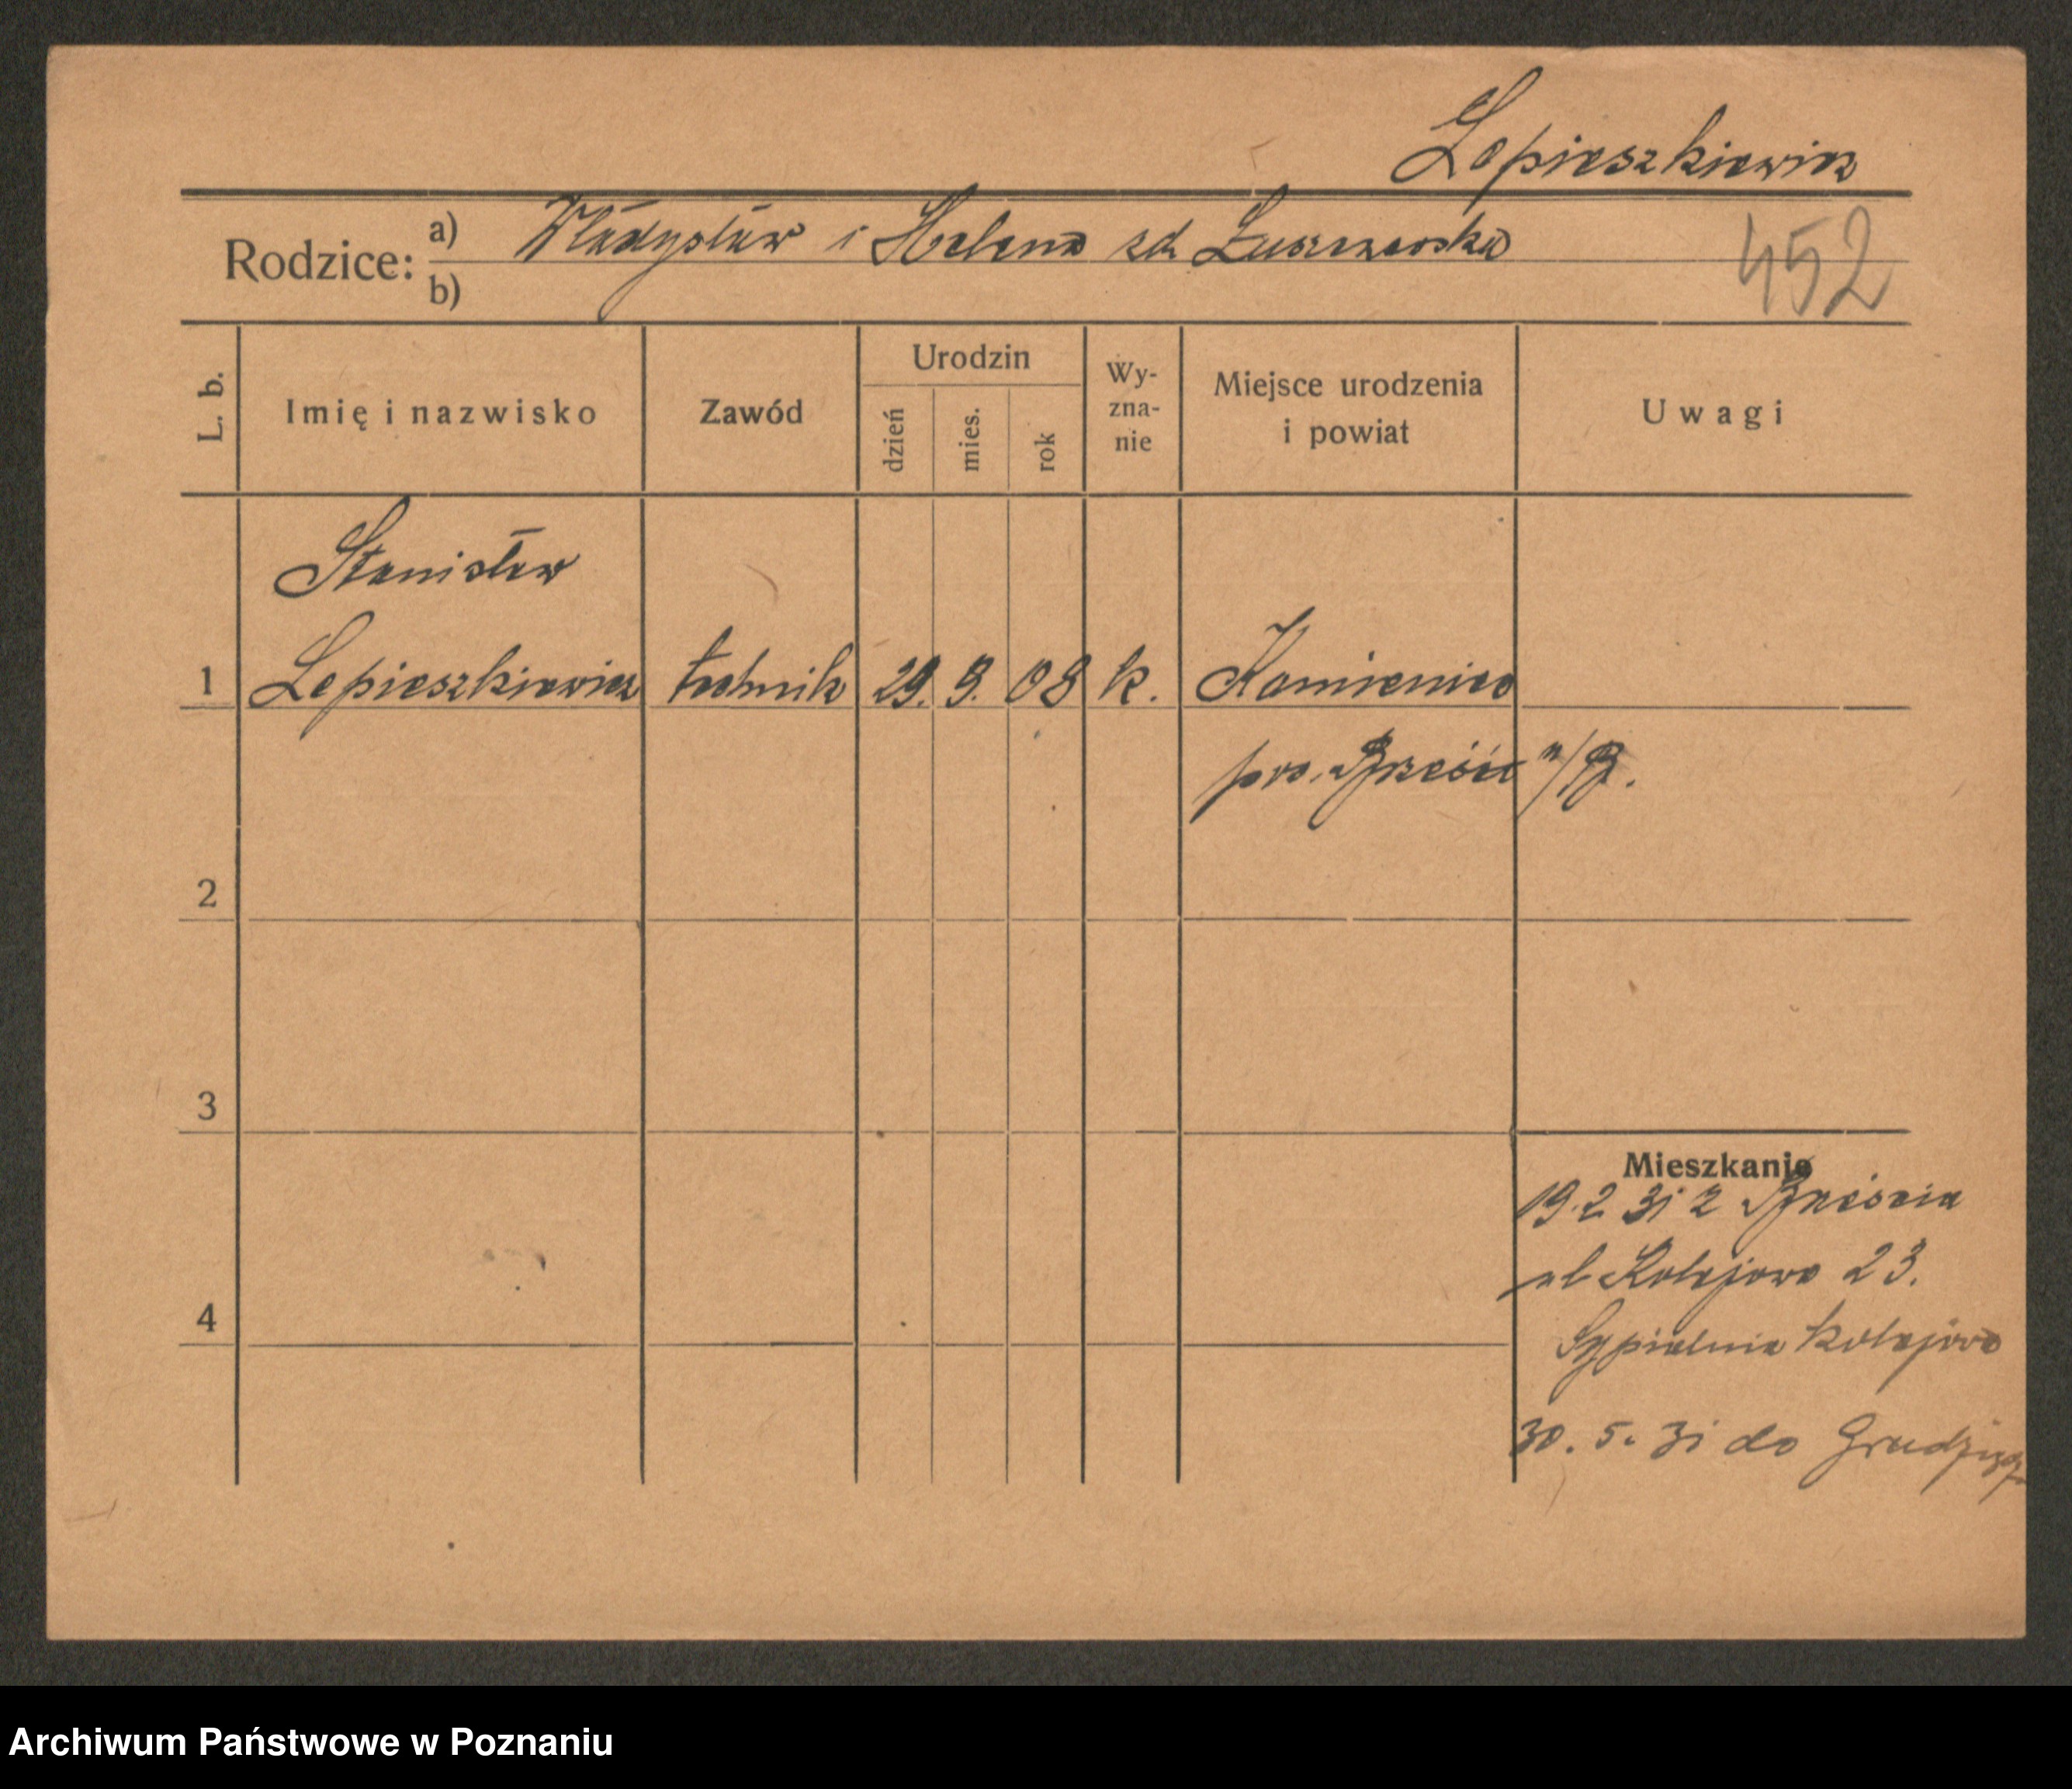 Lepieszkiewicz
Rodzice: a) Władysław i Helena zd. Łuszczewska
b)
452
L. b. Imię i nazwisko Zawód Urodzin dzień mies. rok Wy-zna-nie Miejsce urodzenia i powiat Uwagi
Stanisław
1 Lepieszkiewicz technik 29. 9. 08 k. Kamienica
pow. Brześć n/B.
2
3
Mieszkanie
19.2 31 z Brześcia
ul Kolejowa 23.
4
Sypialnia kolejowa
30. 5. 31 do Grudziądza
Archiwum Państwowe w Poznaniu